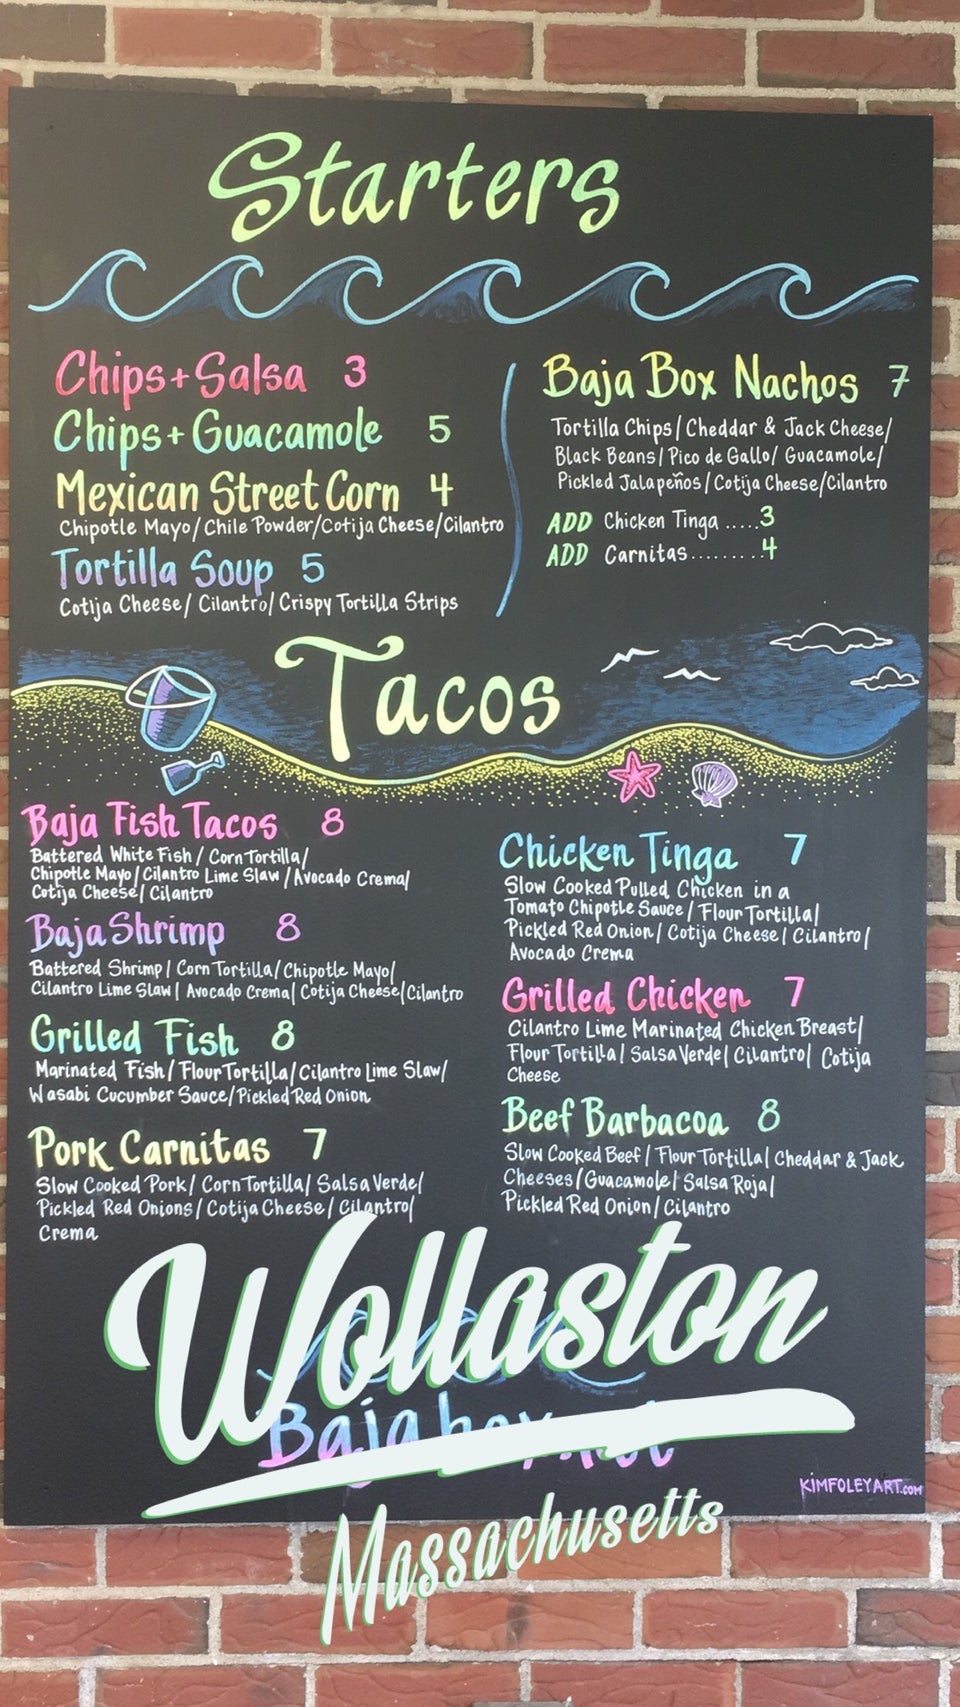 Starters
Chips + Salsa 3
Chips + Guacamole 5
Mexican Street Corn 4
Chipotle Mayo / Chile Powder / Cotija Cheese / Cilantro
Tortilla Soup 5
Cotija Cheese / Cilantro / Crispy Tortilla Strips
Baja Box Nachos 7
Tortilla Chips / Cheddar & Jack Cheese /
Black Beans / Pico de Gallo / Guacamole /
Pickled Jalapeños / Cotija Cheese / Cilantro
ADD Chicken Tinga ..... 3
ADD Carnitas ......... 4
Tacos
Baja Fish Tacos 8
Battered White Fish / Corn Tortilla /
Chipotle Mayo / Cilantro Lime Slaw / Avocado Crema /
Cotija Cheese / Cilantro
Baja Shrimp 8
Battered Shrimp / Corn Tortilla / Chipotle Mayo /
Cilantro Lime Slaw / Avocado Crema / Cotija Cheese / Cilantro
Grilled Fish 8
Marinated Fish / Flour Tortilla / Cilantro Lime Slaw /
Wasabi Cucumber Sauce / Pickled Red Onion
Pork Carnitas 7
Slow Cooked Pork / Corn Tortilla / Salsa Verde /
Pickled Red Onions / Cotija Cheese / Cilantro /
Crema
Chicken Tinga 7
Slow Cooked Pulled Chicken in a
Tomato Chipotle Sauce / Flour Tortilla /
Pickled Red Onion / Cotija Cheese / Cilantro /
Avocado Crema
Grilled Chicken 7
Cilantro Lime Marinated Chicken Breast /
Flour Tortilla / Salsa Verde / Cilantro / Cotija
Cheese
Beef Barbacoa 8
Slow Cooked Beef / Flour Tortilla / Cheddar & Jack
Cheeses / Guacamole / Salsa Roja /
Pickled Red Onion / Cilantro
Wollaston
KIMFOLEYART.COM
Massachusetts